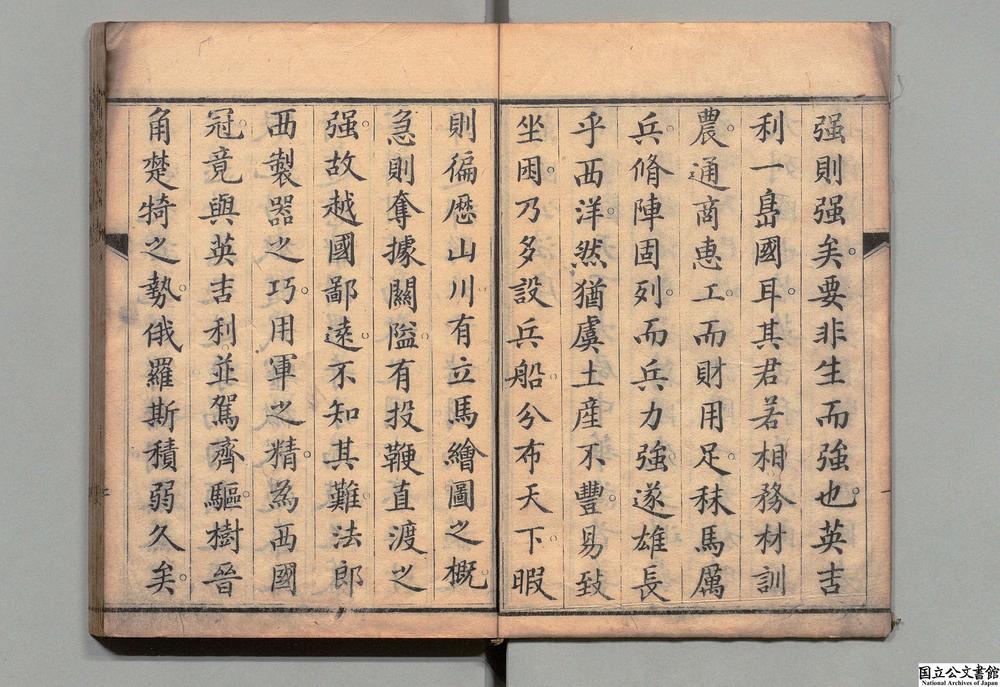 强則强矣。要非生而強也。英吉
利一島國耳。其君若相務材訓
農。通商惠工。而財用足。秣馬厲
兵。脩陣固列。而兵力強。遂雄長
乎西洋。然猶虞土産不豐。易致
坐困。乃多設兵船。分布天下。暇
則徧歷山川。有立馬繪圖之概。
急則奪據關隘。有投鞭直渡之
强。故越國鄙遠。不知其難。法郎
西製器之巧。用軍之精。為西國
冠。竟與英吉利並駕齊驅。樹晉
角楚犄之勢。俄羅斯積弱久矣。
国立公文書館
National Archives of Japan